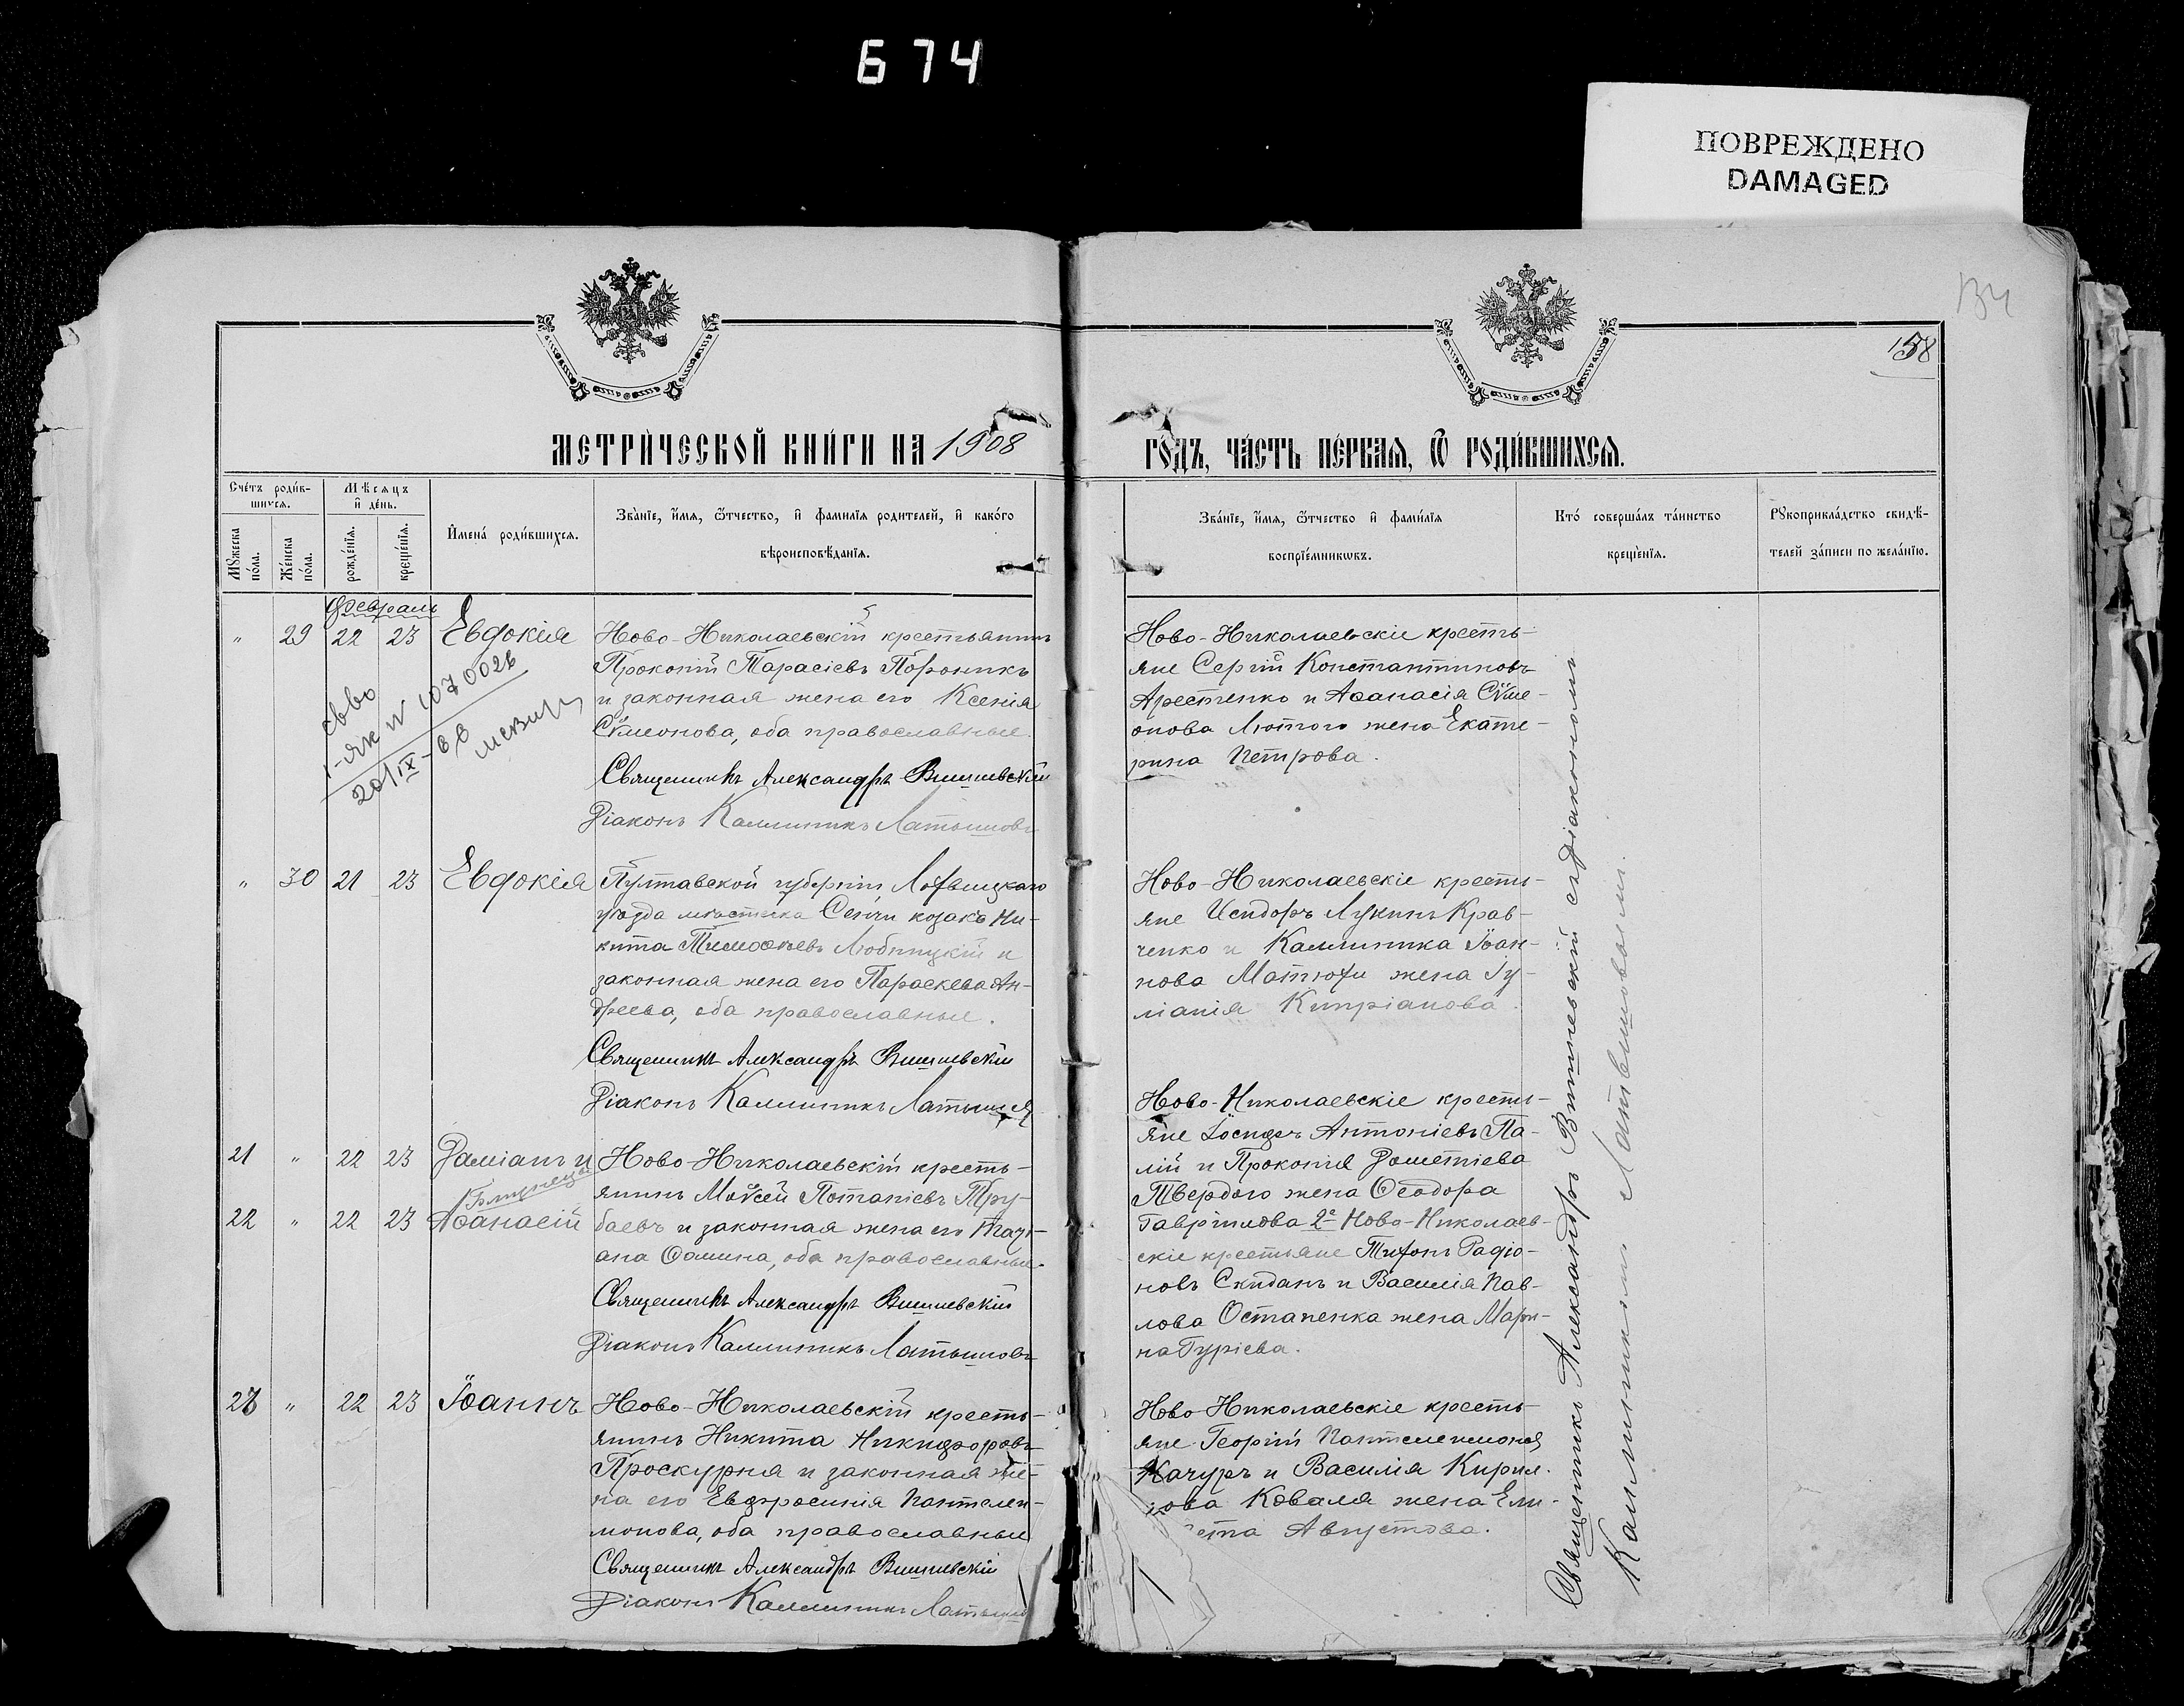 674
ПОВРЕЖДЕНО
DAMAGED
134
158
МЕТРИ́ЧЕСКОЙ КНИ́ГИ НА 1908
ГО́ДЪ, ЧА́СТЬ ПЕ́РВАЯ, Ѿ РОДИ́ВШИХСЯ.
Сче́тъ роди́в-
шихся.
Мѣ́сяцъ
и҆ де́нь.
Мꙋ́жеска по́ла.
Же́нска по́ла.
рожде́нїѧ.
креще́нїѧ.
И҆мена̀ роди́вшихся.
Зва́нїе, и҆́мѧ, ѻ҆́тчество, и҆ фами́лїѧ роди́телей, и҆ како́го
вѣроисповѣ́данїѧ.
Зва́нїе, и҆́мѧ, ѻ҆́тчество и҆ фами́лїѧ
воспрїе́мникѡвъ.
Кто̀ соверша́лъ та́инство
креще́нїѧ.
Рꙋкоприкла́дство свидѣ́-
телей за́писи по жела́нїю.
Февраль
" 29 22 23 Евдокія
Ново-Николаевскій крестьянинъ
Прокопій Тарасіевъ Пороникъ
и законная жена его Ксенія
Сѵмеонова, оба православные.
Священникъ Александръ Вишневскій
Діаконъ Каллиникъ Латышовъ
св-во
1-ЯК № 1070026
20/IX-66
Ново-Николаевскіе кресть-
яне Сергій Константиновъ
Арестенко и Аѳанасія Сѵме-
онова Лютого жена Екате-
рина Петрова.
" 30 21 23 Евдокія
Пултавской губерніи Лохвицкаго
уѣзда мѣстечка Сенчи козакъ Ни-
кита Тимоѳеевъ Любицкій и
законная жена его Параскева Ан-
дреева, оба православные.
Священникъ Александръ Вишневскій
Діаконъ Каллиникъ Латышовъ
Ново-Николаевскіе кресть-
яне Исидоръ Лукинъ Крав-
ченко и Каллиника Іоан-
нова Матюхи жена Іу-
ліанія Кипріанова.
21 " 22 23 Даміанъ и
Близнецы
22 " 22 23 Аѳанасій
Ново-Николаевскій кресть-
янинъ Моѵсей Потапіевъ Тру-
баевъ и законная жена его Тать-
ана Ѳомина, оба православные.
Священникъ Александръ Вишневскій
Діаконъ Каллиникъ Латышовъ
Ново-Николаевскіе кресть-
яне Іосифъ Антоніевъ Па-
лій и Прокопія Дометіева
Твердого жена Ѳеодора
Гавріилова 2е Ново-Николаев-
скіе крестьяне Тихонъ Радіо-
новъ Скиданъ и Василія Пав-
лова Остапенка жена Мари-
на Гуріева.
23 " 22 23 Іоаннъ
Ново-Николаевскій кресть-
янинъ Никита Никифоровъ
Проскурня и законная же-
на его Евфросинія Пантелеи-
монова, оба православные
Священникъ Александръ Вишневскій
Діаконъ Каллиникъ Латышо
Ново-Николаевскіе кресть-
яне Георгій Пантелеимоновъ
Качуръ и Василія Кирил-
лова Коваля жена Ели-
вета Августова.
Священникъ Александръ Вишневскій съ діакономъ
Каллиникомъ Латышовымъ.